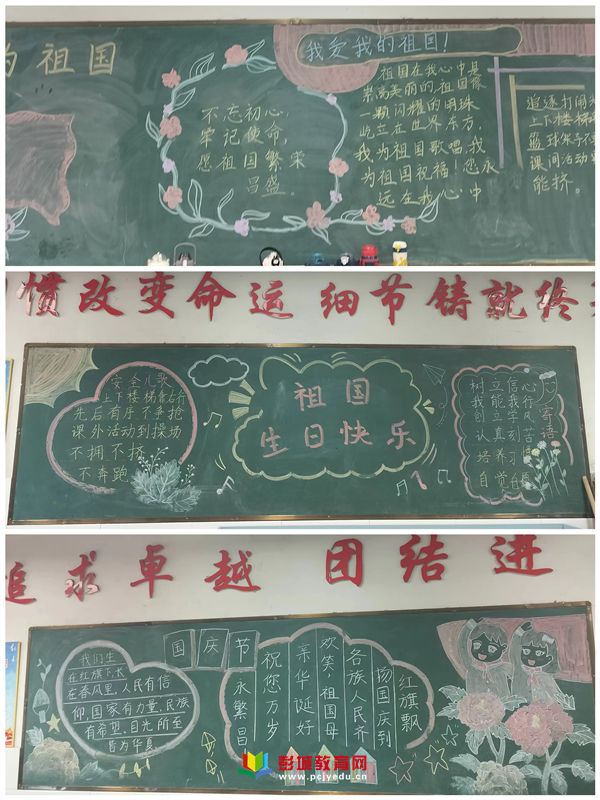 为祖国
不忘初心
牢记使命，
愿祖国繁荣
昌盛
我爱我的祖国！
祖国在我心中是
崇高美丽的，祖国像
一颗闪耀的明珠
屹立在世界东方，
我为祖国歌唱，我
为祖国祝福！您永
远在我心中
追逐打闹
上下楼梯
篮球架子不
课间活动
能挤。
惯改变命运 细节铸就终
安全儿歌
上下楼梯靠右行
先后有序不争抢
课外活动到操场
不拥不挤
不奔跑
祖国
生日快乐
寄语
树立信心
我能我行
创立学风
认真刻苦
培养习
自觉自
追求卓越 团结进
我们生
在红旗下，长
在春风里，人民有信
仰，国家有力量，民族
有希望，目光所至
皆为华夏
国庆节
红旗飘
扬国庆到
各族人民齐
欢笑祖国母
亲华诞好
祝您万岁
永繁昌
彭城教育网
www.pcjyedu.cn